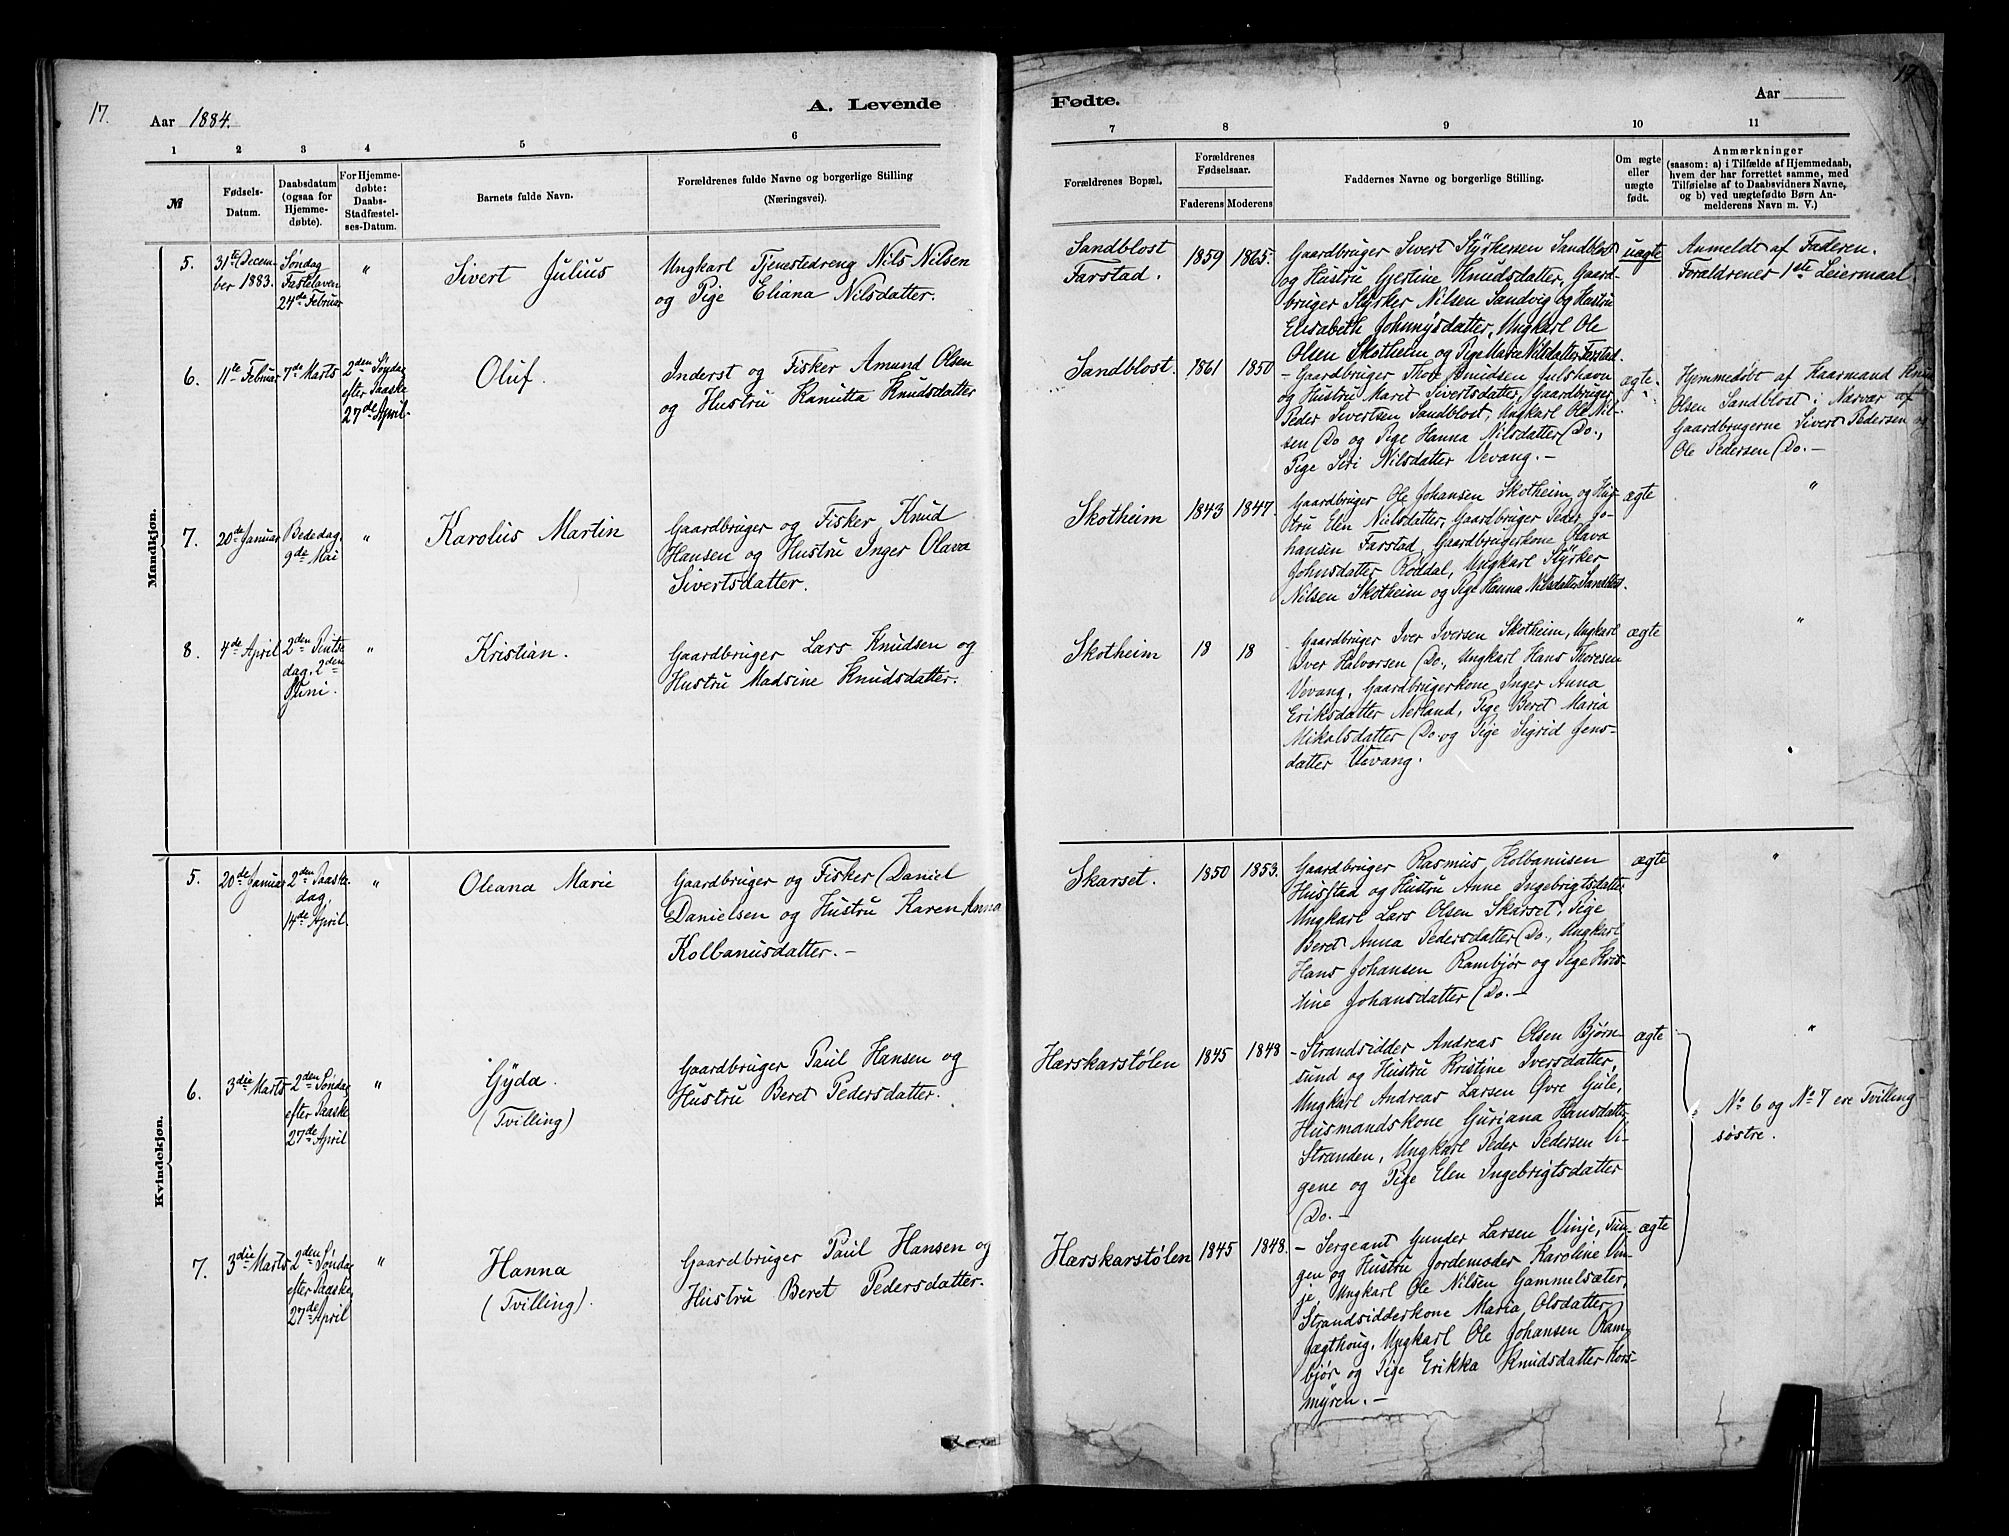 17.
Aar 1884.
A. Levende
1
2
3
4
5
6
№
Fødsels-
Datum.
Daabsdatum
(ogsaa for
Hjemme-
døbte).
For Hjemme-
døbte:
Daabs-
Stadfæstel-
ses-Datum.
Barnets fulde Navn.
Forældrenes fulde Navne og borgerlige Stilling
(Næringsvei).
Mandkjøn.
5.
31te Decem-
ber 1883.
Søndag
Fastelaven
24de Februar
"
Sivert Julius
Ungkarl Tjenestedreng Nils Nilsen
og Pige Eliana Nilsdatter.
6.
11te Februar
7de Marts
2den Søndag
efter Paaske
27de April.
Oluf.
Inderst og Fisker Amund Olsen
og Hustru Ramitta Knudsdatter
7.
20de Januar
Bededag
9de Mai
"
Karolus Martin
Gaardbruger og Fisker Knud
Hansen og Hustru Inger Olava
Sivertsdatter.
8.
4de April
2den Pintse
dag, 2den
Juni.
"
Kristian.
Gaardbruger Lars Knudsen og
Hustru Madsine Knudsdatter.
Kvindekjøn.
5.
20de Januar
2den Paaske
dag,
14de April.
"
Oleana Marie
Gaardbruger og Fisker Daniel
Danielsen og Hustru Karen Anna
Kolbanusdatter. –
6.
3die Marts
2den Søndag
efter Paaske
27de April
"
Gyda.
(Tvilling)
Gaardbruger Paul Hansen og
Hustru Beret Pedersdatter.
7.
3die Marts
2den Søndag
efter Paaske
27de April
"
Hanna
(Tvilling).
Gaardbruger Paul Hansen og
Hustru Beret Pedersdatter.
17
Fødte.
Aar
7
8
9
10
11
Forældrenes Bopæl.
Forældrenes
Fødselsaar.
Faderens
Moderens
Faddernes Navne og borgerlige Stilling.
Om ægte
eller
uægte
født.
Anmærkninger
(saasom: a) i Tilfælde af Hjemmedaab,
hvem der har forrettet samme, med
Tilføielse af to Daabsvidners Navne,
og b) ved uægtefødte Børn An-
melderens Navn m. V.)
Sandblost
Farstad.
1859
1865.
Gaardbruger Sivert Styrkersen Sandblost
og Hustru Gjertine Knudsdatter, Gaard-
bruger Styrker Nilsen Sandvig og Hustru
Elisabeth Johnnysdatter, Ungkarl Ole
Olsen Skotheim og Pige Marie Nilsdatter Farstad.
uægte
Anmeldt af Faderen.
Forældrenes 1ste Leiermaal.
Sandblost.
1861
1850
– Gaardbruger Thor Knudsen Julshavn
og Hustru Marit Sivertsdatter, Gaardbruger
Peder Sivertsen Sandblost, Ungkarl Ole Nil-
sen Do og Pige Hanna Nilsdatter Do.,
Pige Seri Nilsdatter Vevang. –
ægte.
Hjemmedøbt af Kaarmand Knud
Olsen Sandblost i Nærvær af
Gaardbrugerne Sivert Pedersen og
Ole Pedersen Do. –
Skotheim
1843
1847.
Gaardbruger Ole Johansen Skotheim og Hus-
tru Elen Nielsdatter, Gaardbruger Peder Jo-
hansen Farstad, Gaardbrugerkone Olava
Johnsdatter Røddal, Ungkarl Styrker
Nilsen Skotheim og Pige Hanna Nilsdatter Sandblost.
ægte
"
Skotheim
18
18
– Gaardbruger Iver Iversen Skotheim, Ungkarl
Iver Halvorsen Do., Ungkarl Hans Thoresen
Vevang, Gaardbrugerkone Inger Anna
Eriksdatter Nerland, Pige Beret Maria
Mikalsdatter Do. og Pige Sigrid Jens-
datter Vevang.
ægte
"
Skarset.
1850
1853.
Gaardbruger Rasmus Kolbanusen
Husstad og Hustru Anne Ingebrigtsdatter
Ungkarl Lars Olsen Skarset, Pige
Beret Anna Pedersdatter Do., Ungkarl
Hans Johansen Rambjør og Pige Kris-
tine Johansdatter Do. –
ægte
"
Hærskarstølen
1845
1848
– Strandsidder Andreas Olsen Bjørn-
sund og Hustru Kristine Iversdatter,
Ungkarl Andreas Larsen Øvre Gule,
Husmandskone Guriana Hansdatter
Stranden, Ungkarl Peder Pedersen Vi-
gene og Pige Elen Ingebrigtsdatter
Do. –
ægte
"
No 6 og No 7 ere Tvilling
søstre.
Hærskarstølen
1845
1848.
– Sergeant Gunder Larsen Vinje, Tun-
gen og Hustru Jordemoder Karoline Vin-
je, Ungkarl Ole Nilsen Gammelsæter,
Strandsidderkone Maria Olsdatter
Jægthoug, Ungkarl Ole Johansen Ram-
bjør og Pige Erikka Knudsdatter Kors-
myren. –
ægte